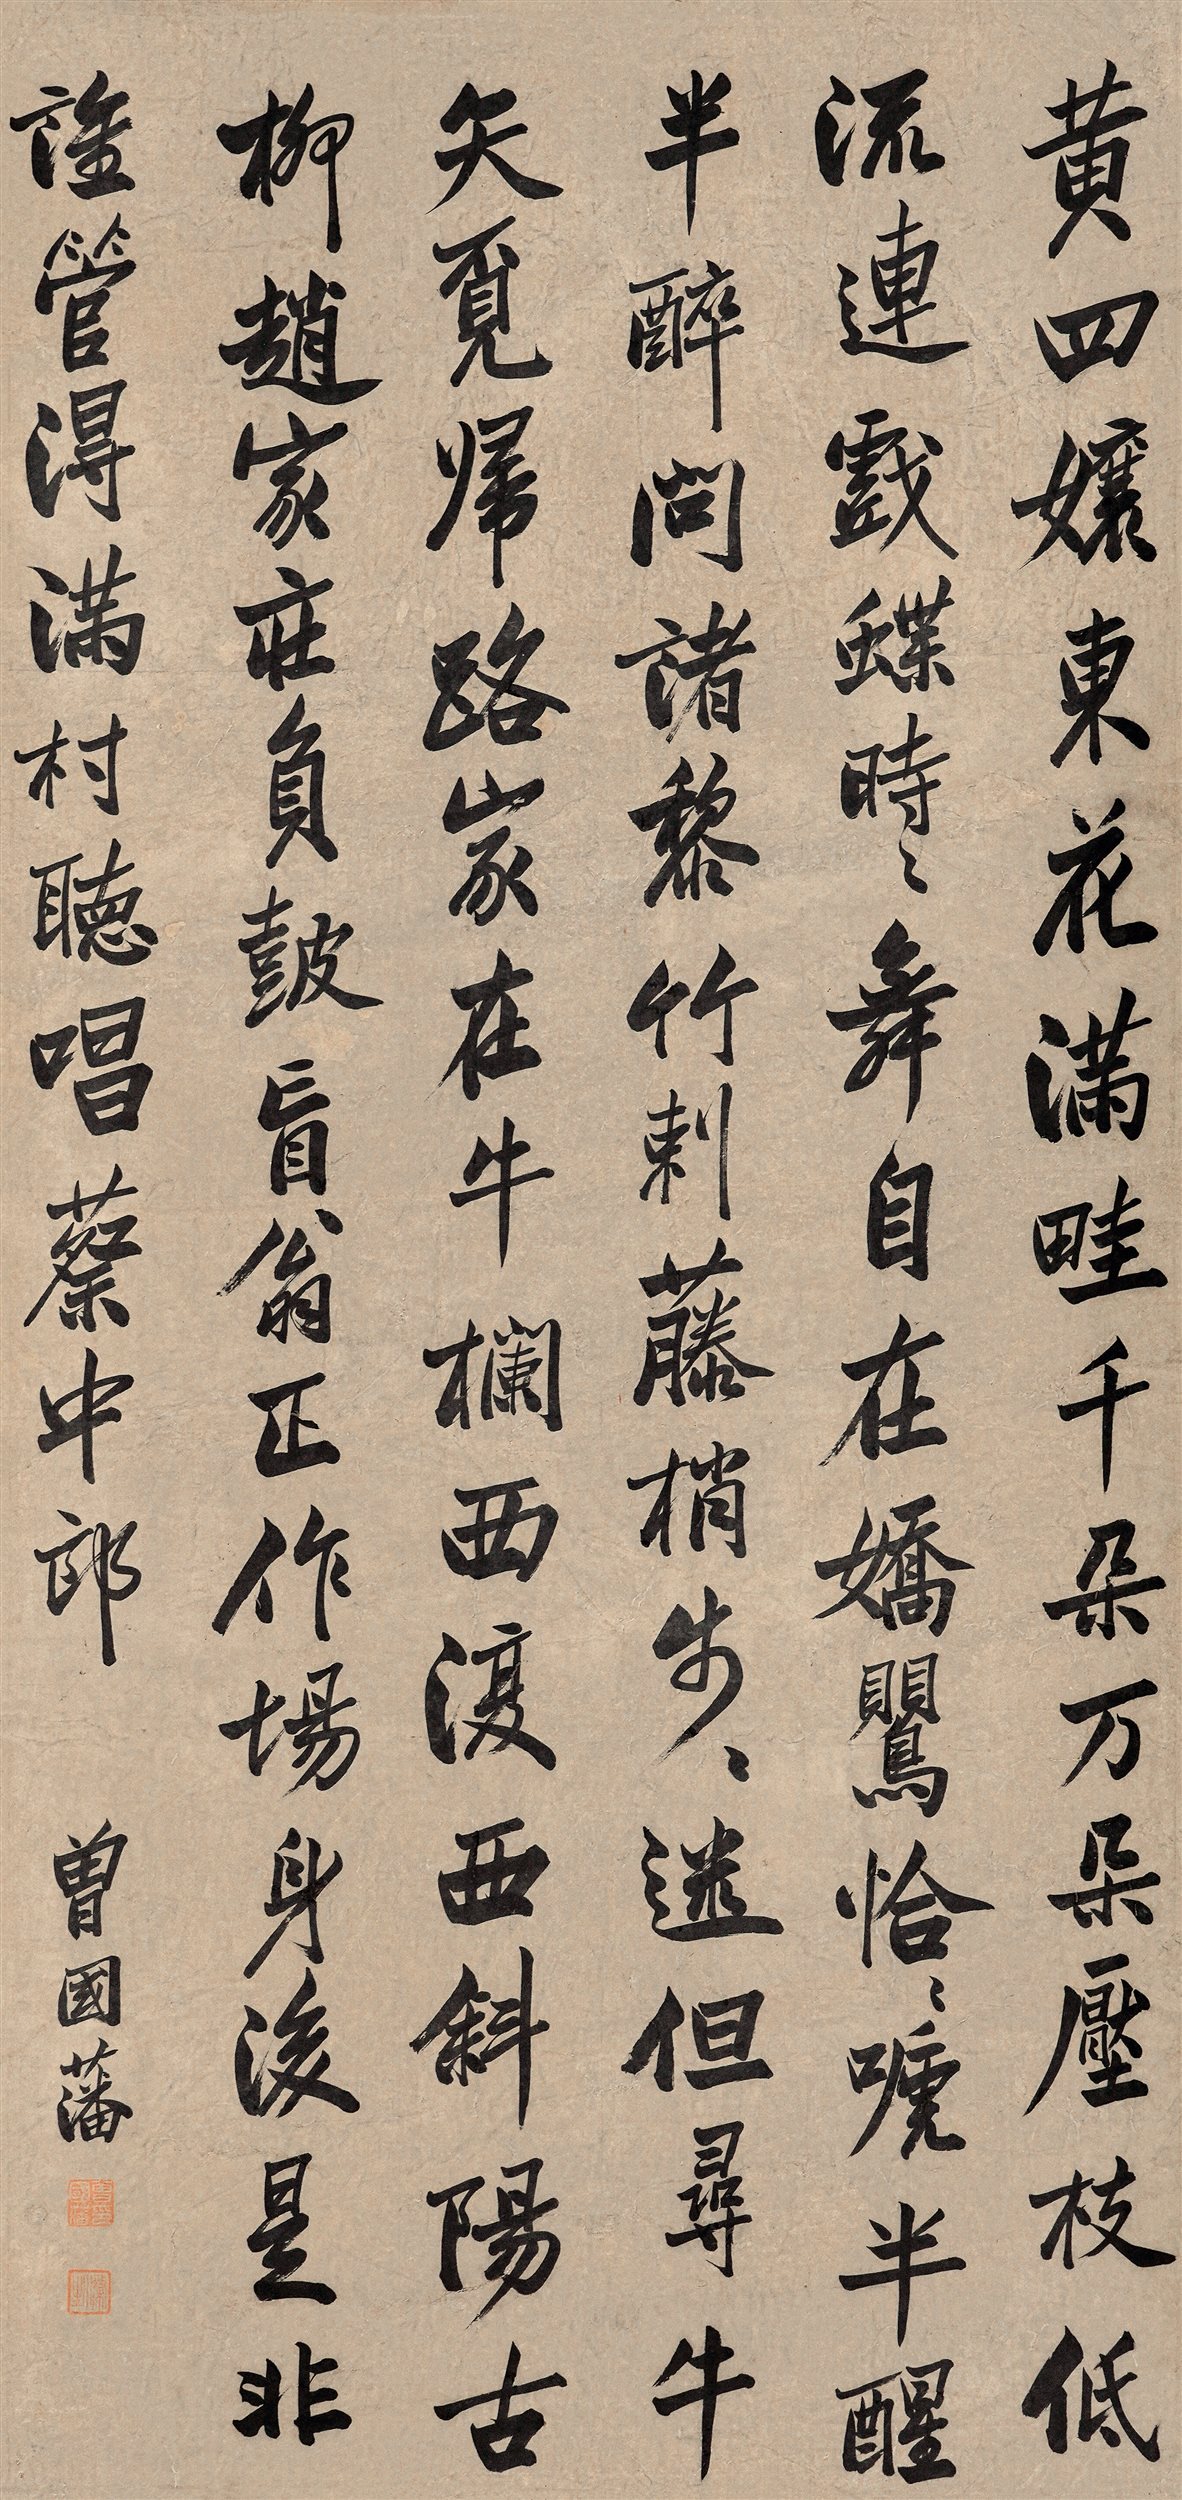 黄四孃東花滿畦千朵万朵壓枝低
流連戲蝶時〻舞自在嬌鸎恰〻嗁半醒
半醉問諸黎竹刺藤梢步〻迷但尋牛
矢覓歸路家在牛欄西復西斜陽古
柳趙家庄負鼓盲翁正作場身後是非
誰管得滿村聽唱蔡中郎
曾國藩